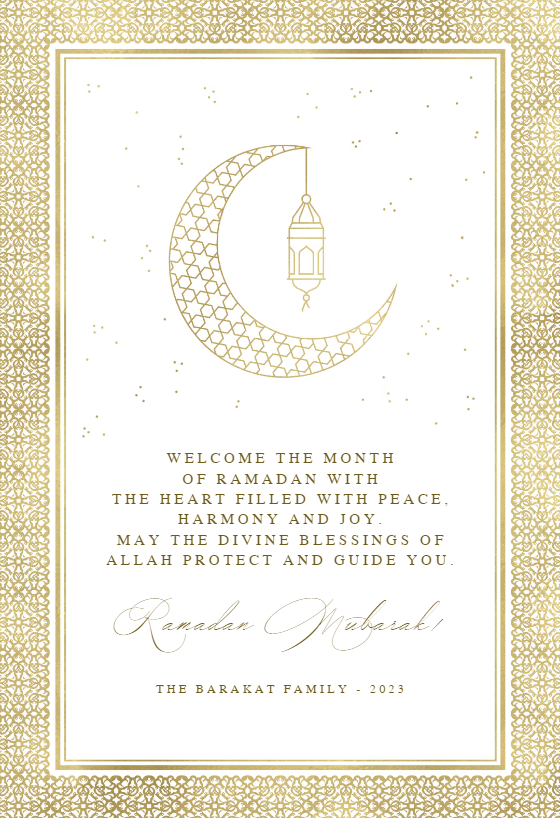 WELCOME THE MONTH
OF RAMADAN WITH
THE HEART FILLED WITH PEACE,
HARMONY AND JOY.
MAY THE DIVINE BLESSINGS OF
ALLAH PROTECT AND GUIDE YOU.
Ramadan Mubarak!
THE BARAKAT FAMILY - 2023